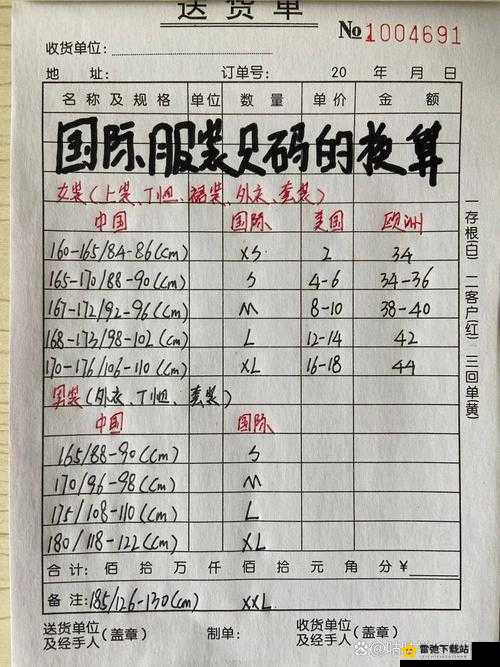 送货单
№1004691
收货单位:
地 址: 订单号: 20 年 月 日
名称及规格 单位 数量 单价 金额
国际服装尺码的换算
女装(上装、T恤、裙装、外衣、套装)
中国 国际 美国 欧洲
160-165/84-86(cm) XS 2 34
165-170/88-90(cm) S 4-6 34-36
167-172/92-96(cm) M 8-10 38-40
168-173/98-102(cm) L 12-14 42
170-176/106-110(cm) XL 16-18 44
男装(外衣、T恤、套装)
中国 国际
165/88-90(cm) S
170/96-98(cm) M
175/108-110(cm) L
180/118-122(cm) XL
合计: 佰 拾 万 仟 佰 拾 元 角 分 ¥
备注:185/126-130(cm) XXL
送货单位及经手人(盖章) 制单: 收货单位及经手人(盖章)
一存根(白) 二客户(红) 三回单(黄)
雷弛下载站